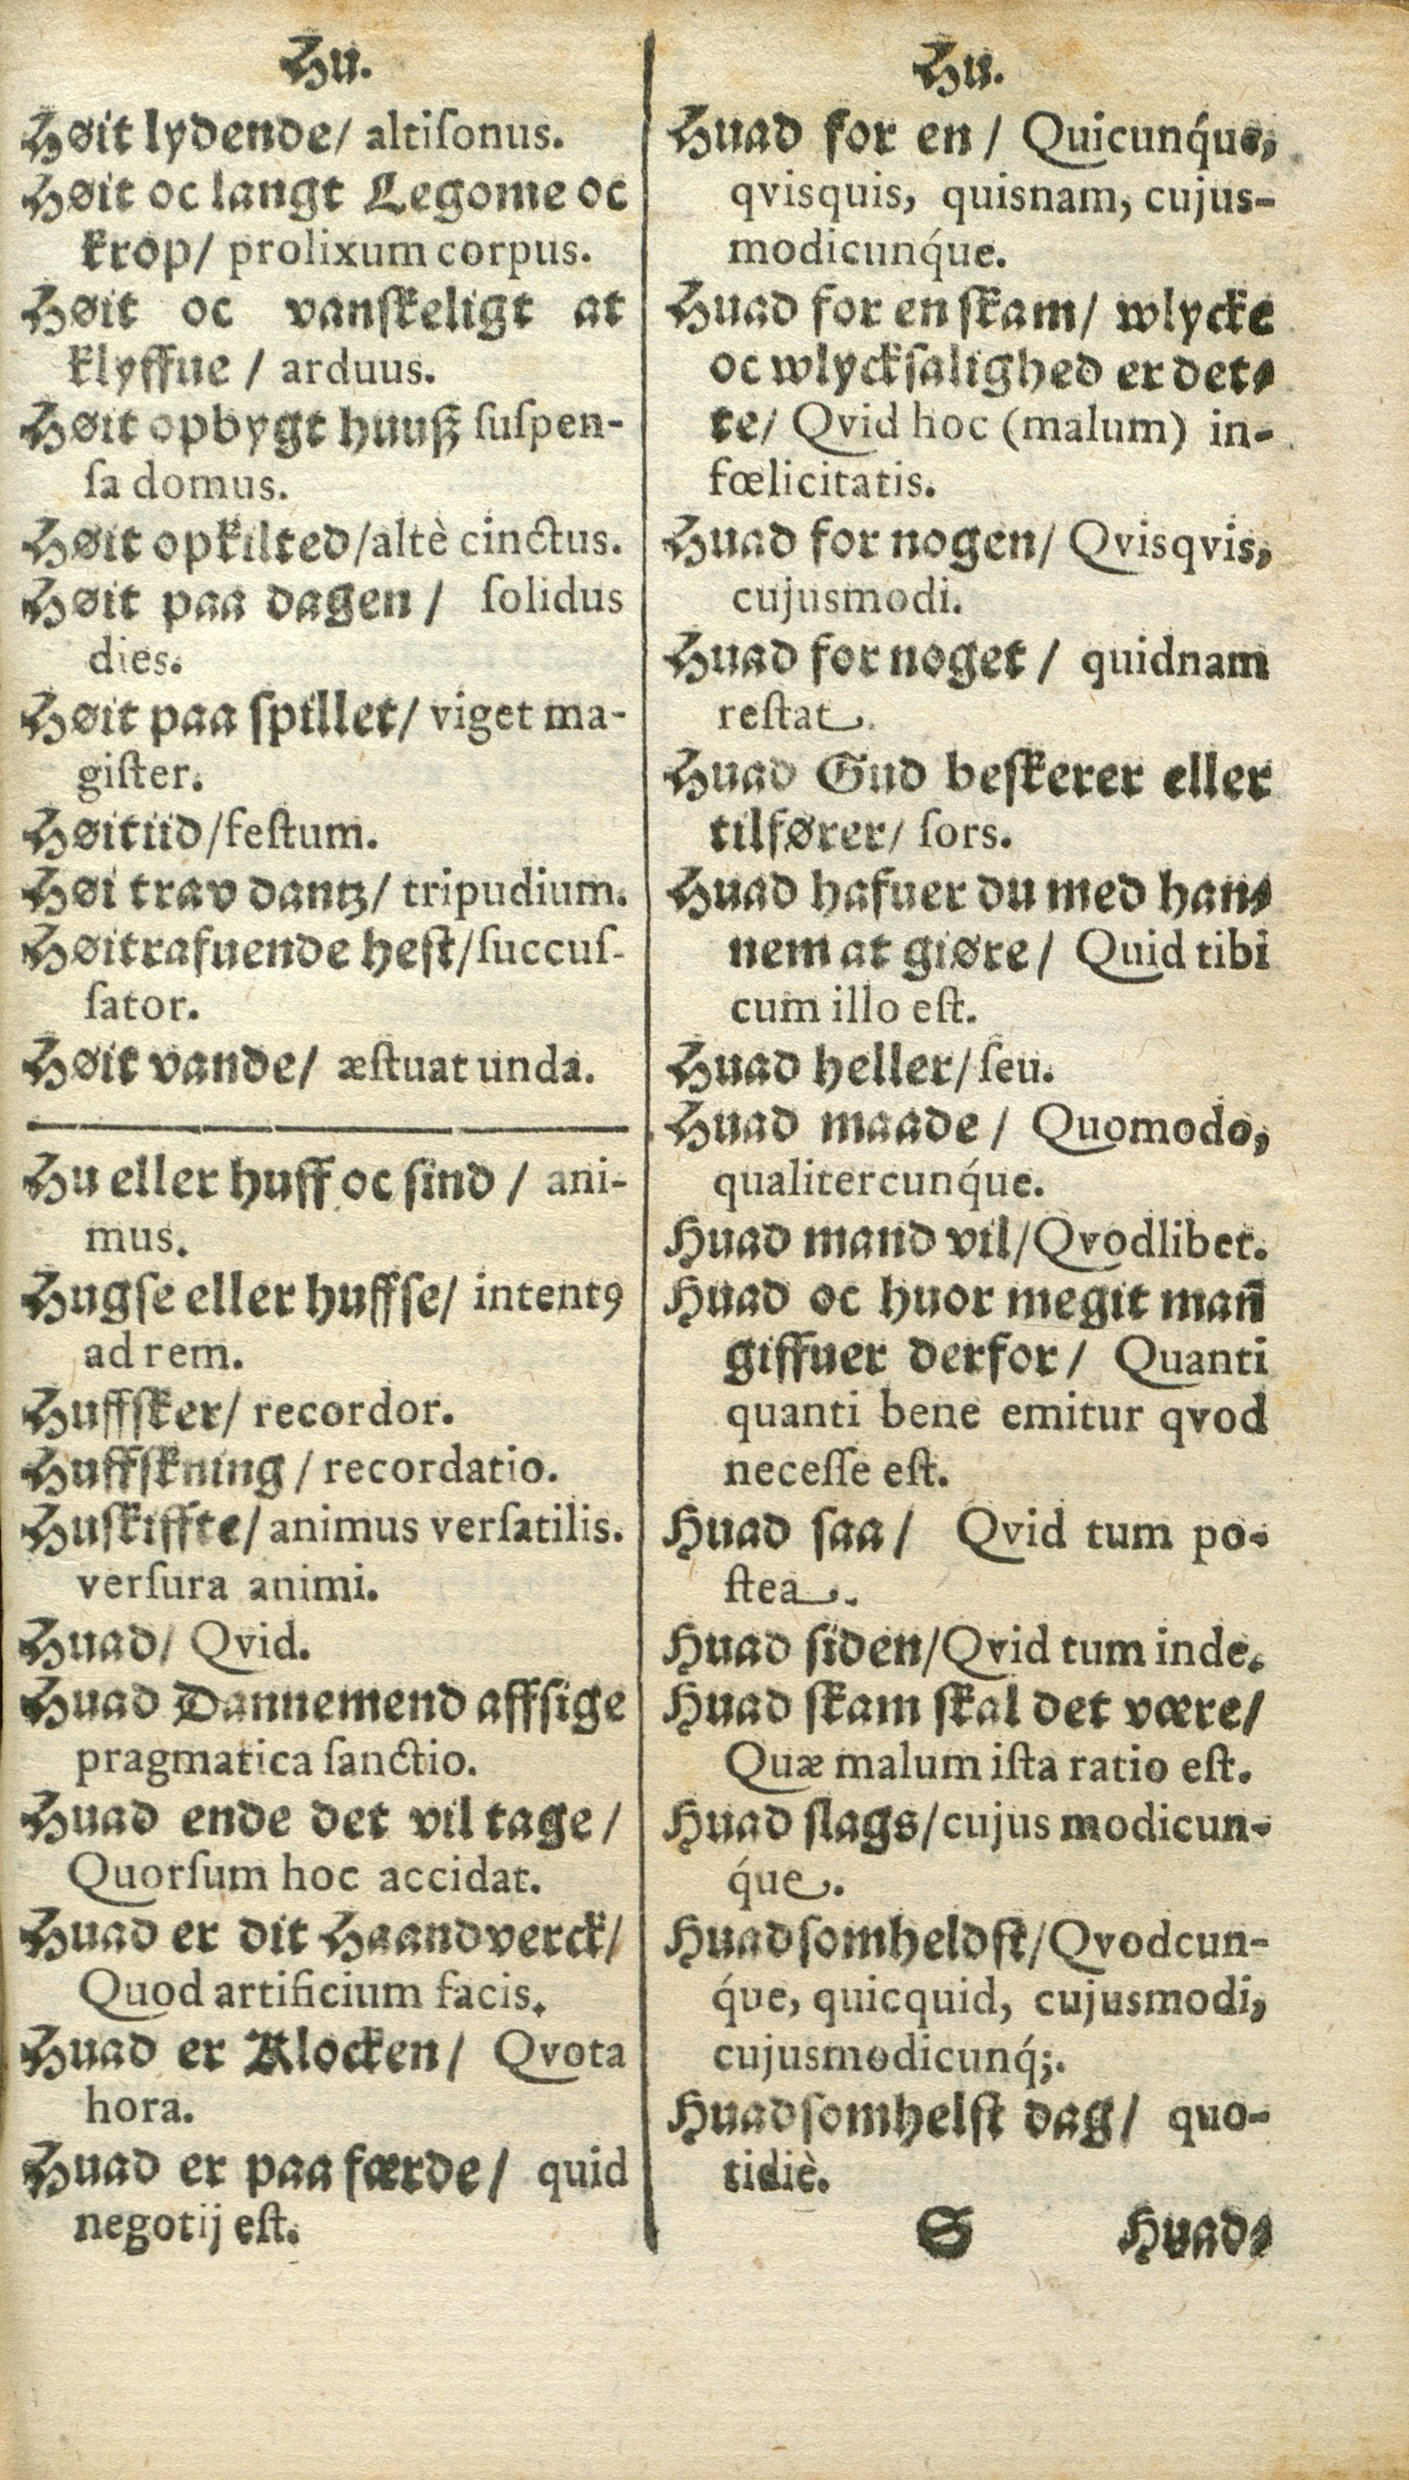 Hu.
Høit lydende/ altiſonus.
Høit oc langt Legome oc
krop/ prolixum corpus.
Høit oc vanſkeligt at
klyffue / arduus.
Høit opbygt huuſz ſuſpen-
ſa domus.
Høit opkilted/altè cinctus.
Høit paa dagen / ſolidus
dies.
Høit paa ſpillet/ viget ma-
giſter.
Høitiid/feſtum.
Høi trav dantz/ tripudium.
Høitrafuende heſt/ſuccuſ-
ſator.
Høit vande/ æſtuat unda.
Hu eller huff oc ſind / ani-
mus.
Hugſe eller huffſe/ intentꝯ
ad rem.
Huffſker/ recordor.
Huffſkning / recordatio.
Huſkiffte/ animus verſatilis.
verſura animi.
Huad/ Qvid.
Huad Dannemend affſige
pragmatica ſanctio.
Huad ende det vil tage/
Quorſum hoc accidat.
Huad er dit Haandverck/
Quod artificium facis.
Huad er Klocken/ Qvota
hora.
Huad er paa færde/ quid
negotij eſt.
Hu.
Huad for en / Quicunq́ue,
qvisquis, quisnam, cujus-
modicunq́ue.
Huad for en ſkam/ wlycke
oc wlyckſalighed er det-
te/ Qvid hoc (malum) in-
fœlicitatis.
Huad for nogen/ Qvisqvis,
cujusmodi.
Huad for noget / quidnam
reſtat.
Huad Gud beſkerer eller
tilfører/ ſors.
Huad hafuer du med han-
nem at giøre/ Quid tibi
cum illo eſt.
Huad heller/ſeu.
Huad maade / Quomodo,
qualitercunq́ue.
Huad mand vil/Qvodlibet.
Huad oc huor megit man̄
giffuer derfor/ Quanti
quanti bene emitur qvod
neceſſe eſt.
Huad ſaa/ Qvid tum po-
ſtea.
Huad ſiden/Qvid tum inde.
Huad ſkam ſkal det være/
Quæ malum iſta ratio eſt.
Huad ſlags/cujus modicun-
q́ue.
Huadſomheldſt/Qvodcun-
q́ue, quicquid, cujusmodi,
cujusmodicunq́;.
Huadſomhelſt dag/ quo-
tidiè.
S Huad-